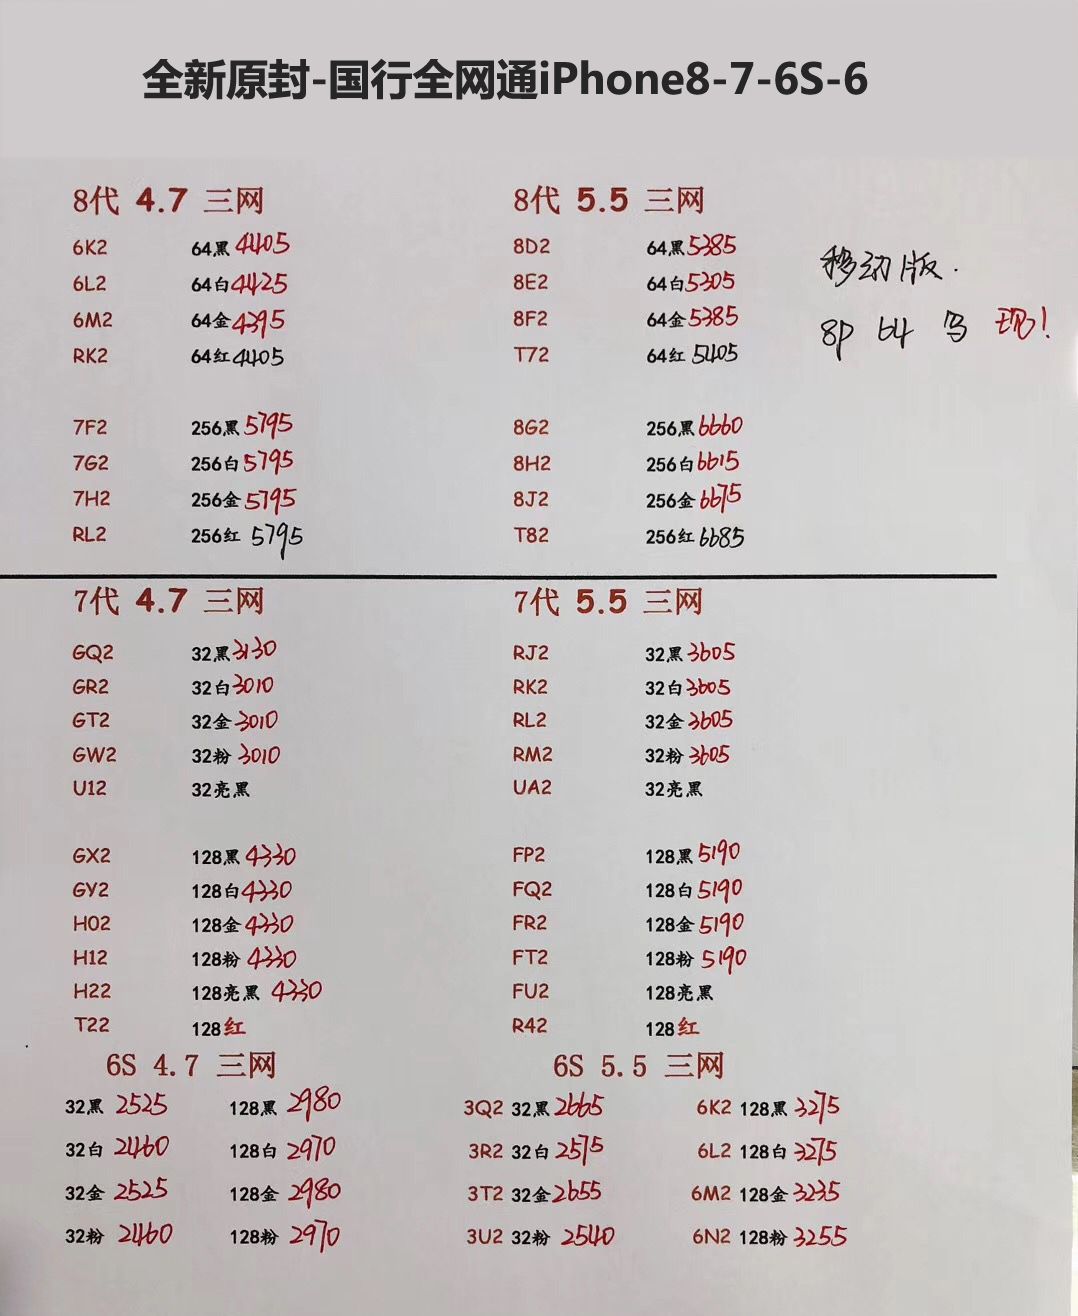 全新原封-国行全网通iPhone8-7-6S-6
8代 4.7 三网
6K2 64黑 4405
6L2 64白 4425
6M2 64金 4395
RK2 64红 4405
7F2 256黑 5795
7G2 256白 5795
7H2 256金 5795
RL2 256红 5795
8代 5.5 三网
8D2 64黑 5385
8E2 64白 5305
8F2 64金 5385
T72 64红 5405
8G2 256黑 6660
8H2 256白 6615
8J2 256金 6675
T82 256红 6685
移动版.
8P 64 现!
7代 4.7 三网
GQ2 32黑 3130
GR2 32白 3010
GT2 32金 3010
GW2 32粉 3010
U12 32亮黑
GX2 128黑 4330
GY2 128白 4330
H02 128金 4330
H12 128粉 4330
H22 128亮黑 4330
T22 128红
7代 5.5 三网
RJ2 32黑 3605
RK2 32白 3605
RL2 32金 3605
RM2 32粉 3605
UA2 32亮黑
FP2 128黑 5190
FQ2 128白 5190
FR2 128金 5190
FT2 128粉 5190
FU2 128亮黑
R42 128红
6S 4.7 三网
32黑 2525 128黑 2980
32白 2460 128白 2970
32金 2525 128金 2980
32粉 2460 128粉 2970
6S 5.5 三网
3Q2 32黑 2665 6K2 128黑 3275
3R2 32白 2575 6L2 128白 3275
3T2 32金 2655 6M2 128金 3235
3U2 32粉 2540 6N2 128粉 3255